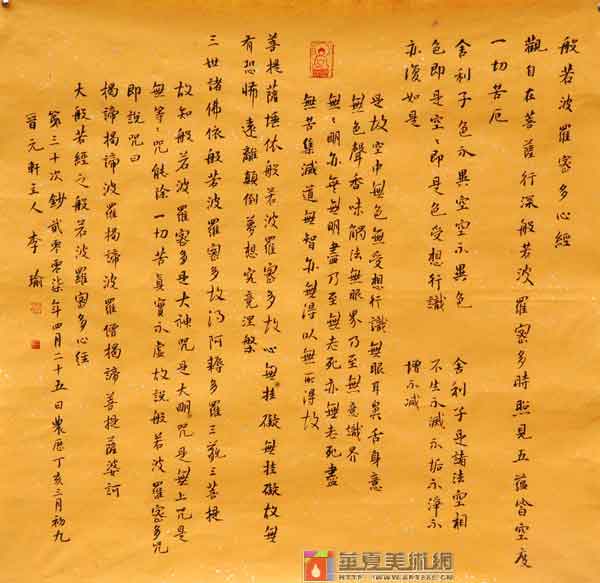 般若波羅密多心經
觀自在菩薩行深般若波羅密多時照見五蘊皆空度
一切苦厄
舍利子色不異空空不異色
色即是空空即是色受想行識
亦復如是
舍利子是諸法空相
不生不滅不垢不淨不
增不減
是故空中無色無受想行識無眼耳鼻舌身意
無色聲香味觸法無眼界乃至無意識界
無無明亦無無明盡乃至無老死亦無老死盡
無苦集滅道無智亦無得以無所得故
菩提薩埵依般若波羅密多故心無挂礙無挂礙故無
有恐怖遠離顛倒夢想究竟涅槃
三世諸佛依般若波羅密多故得阿耨多羅三藐三菩提
故知般若波羅密多是大神咒是大明咒是無上咒是
無等等咒能除一切苦真實不虛故說般若波羅密多咒
即說咒曰
揭諦揭諦波羅揭諦波羅僧揭諦菩提薩婆訶
大般若經之般若波羅密多心經
第三十次鈔貳零零柒年四月二十五日農历丁亥三月初九
晉元軒主人李瑜
華夏美術網